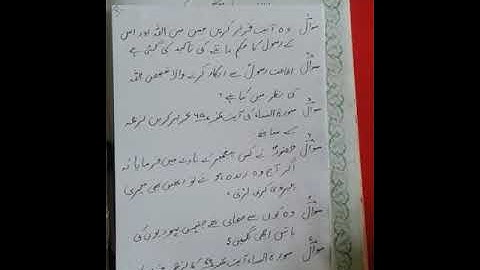 سوال وہ آیت تحریر کریں جس میں اللہ اور اس
کے رسول کا حکم ماننے کی تاکید کی گئی ہے
سوال اطاعت رسولؐ سے انکار کرنے والا شخص اللہ
کی نظر میں کیا ہے؟
سوال سورۃ النساء کی آیت نمبر ٦٥ تحریر کریں ترجمہ
کے ساتھ
سوال حضورؐ نے کس پیغمبر کے بارے میں فرمایا کہ
اگر آج وہ زندہ ہوتے تو انہیں بھی میری
پیروی کرنی پڑتی؟
سوال وہ کون سے صحابی تھے جنہیں یہودیوں کی
باتیں اچھی لگیں؟
سوال سورۃ النساء آیت نمبر